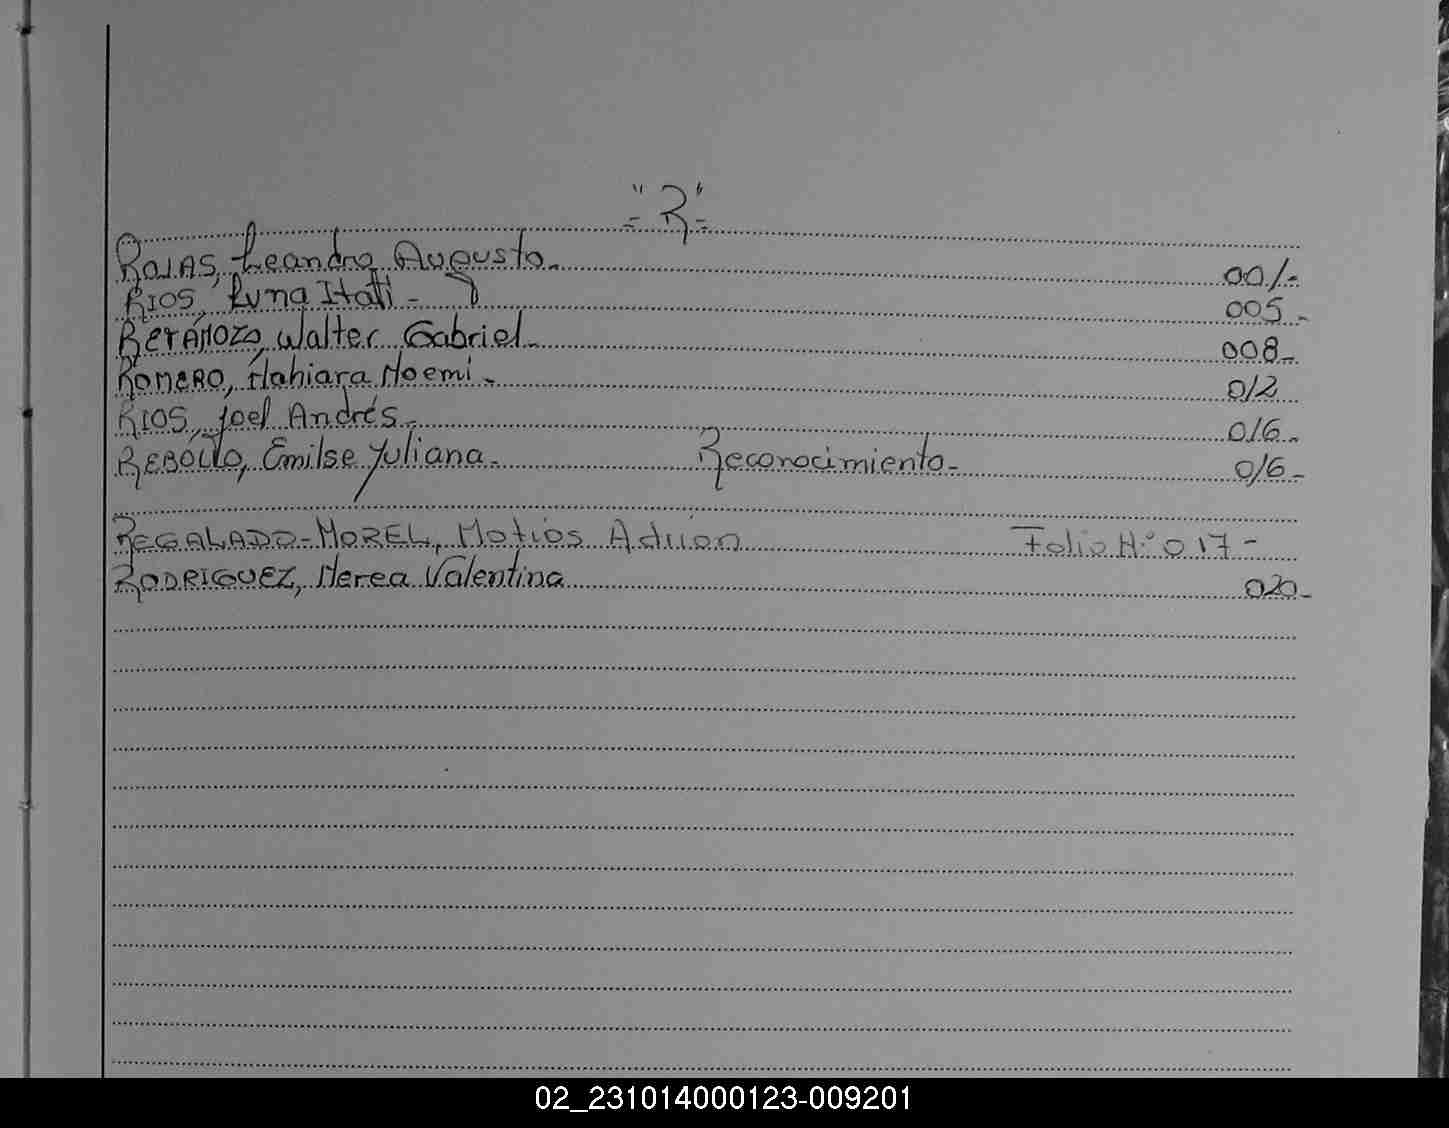 -"R"-
ROJAS, Leandro Augusto. 001-
RIOS, Luna Itatí - 005-
RETAMOZO, Walter Gabriel- 008-
ROMERO, Nahiara Noemi- 012
RIOS, Joel Andrés- 016-
REBOLLO, Emilse Yuliana- Reconocimiento- 016-
REGALADO-MOREL, Matías Adrián Folio N° 017-
RODRIGUEZ, Nerea Valentina 020-
02_231014000123-009201